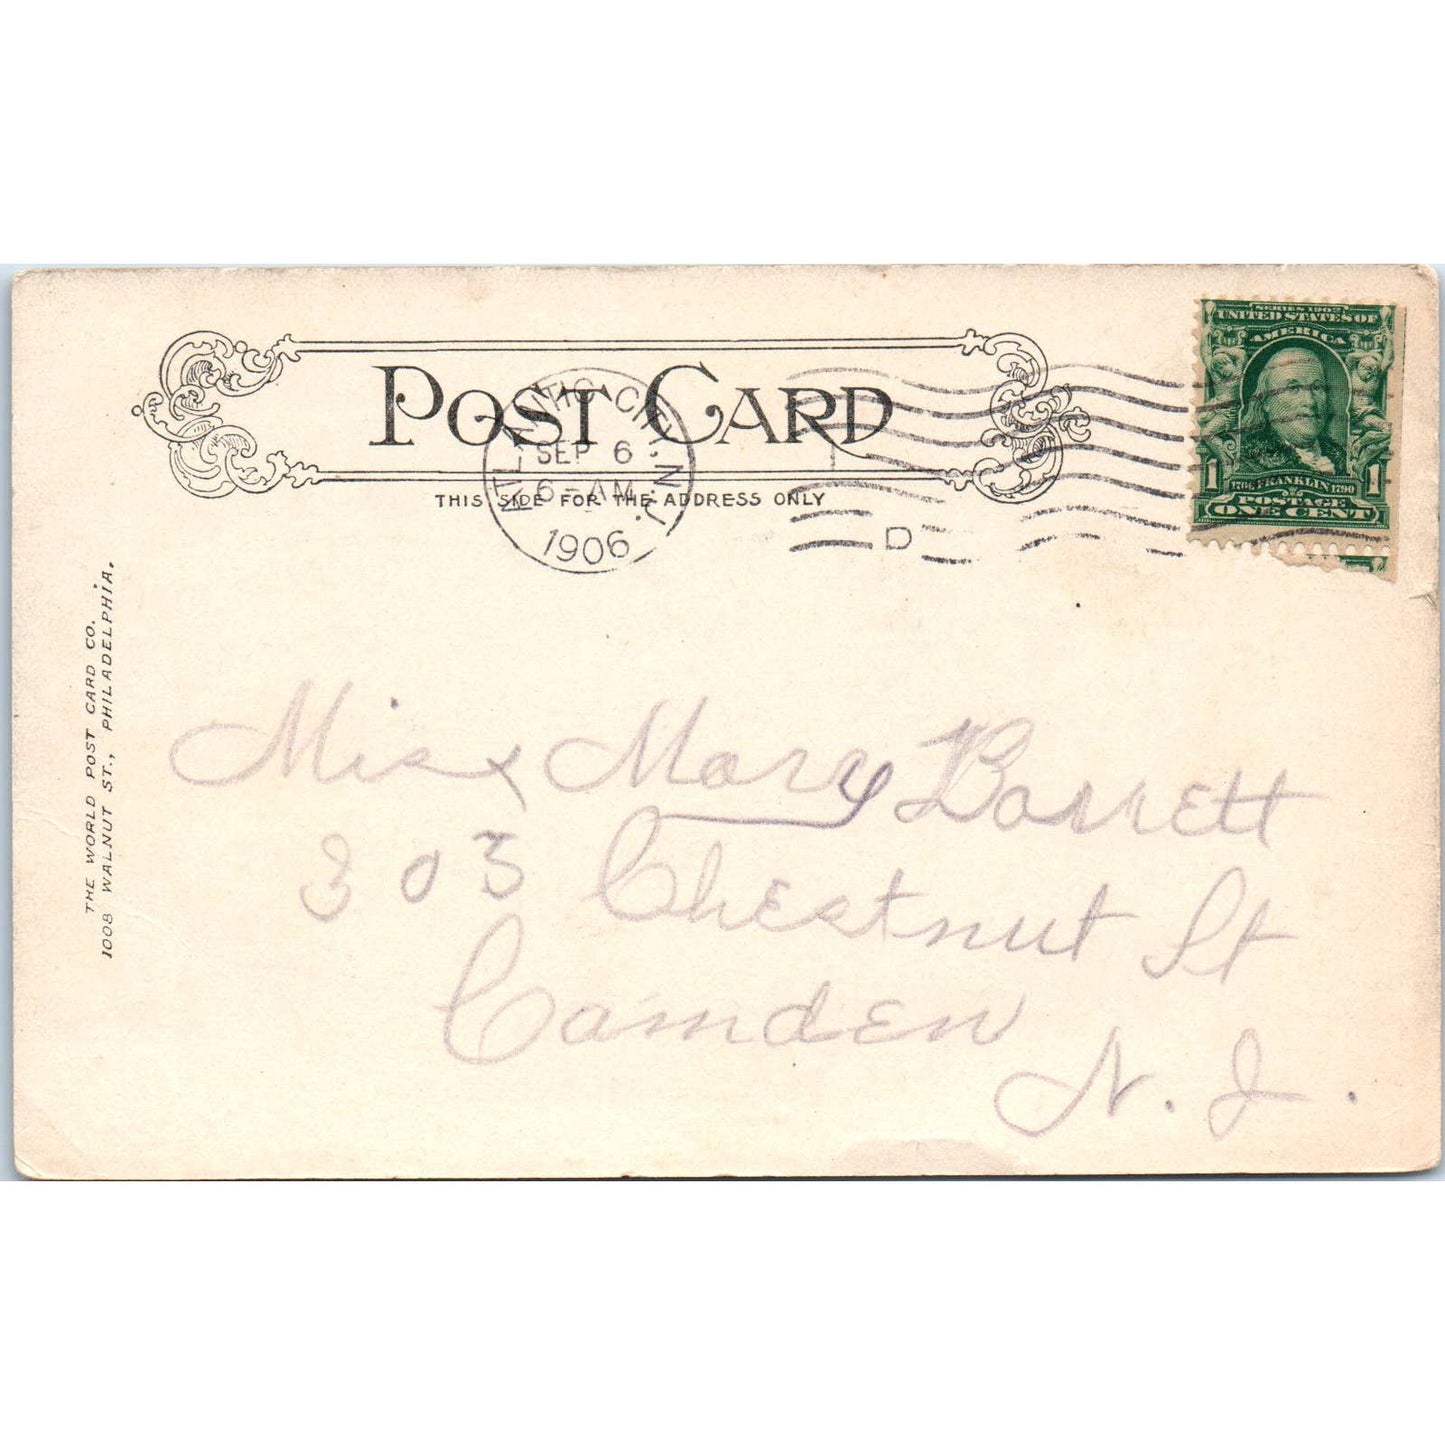 POST CARD
THIS SIDE FOR THE ADDRESS ONLY
ATLANTIC CITY, N.J.
SEP 6
6-AM
1906
D
SERIES 1902
UNITED STATES OF
AMERICA
1 1
1706 FRANKLIN 1790
POSTAGE
ONE CENT
THE WORLD POST CARD CO.
1008 WALNUT ST., PHILADELPHIA.
Miss Mary Barrett
303 Chestnut St
Camden
N. J.